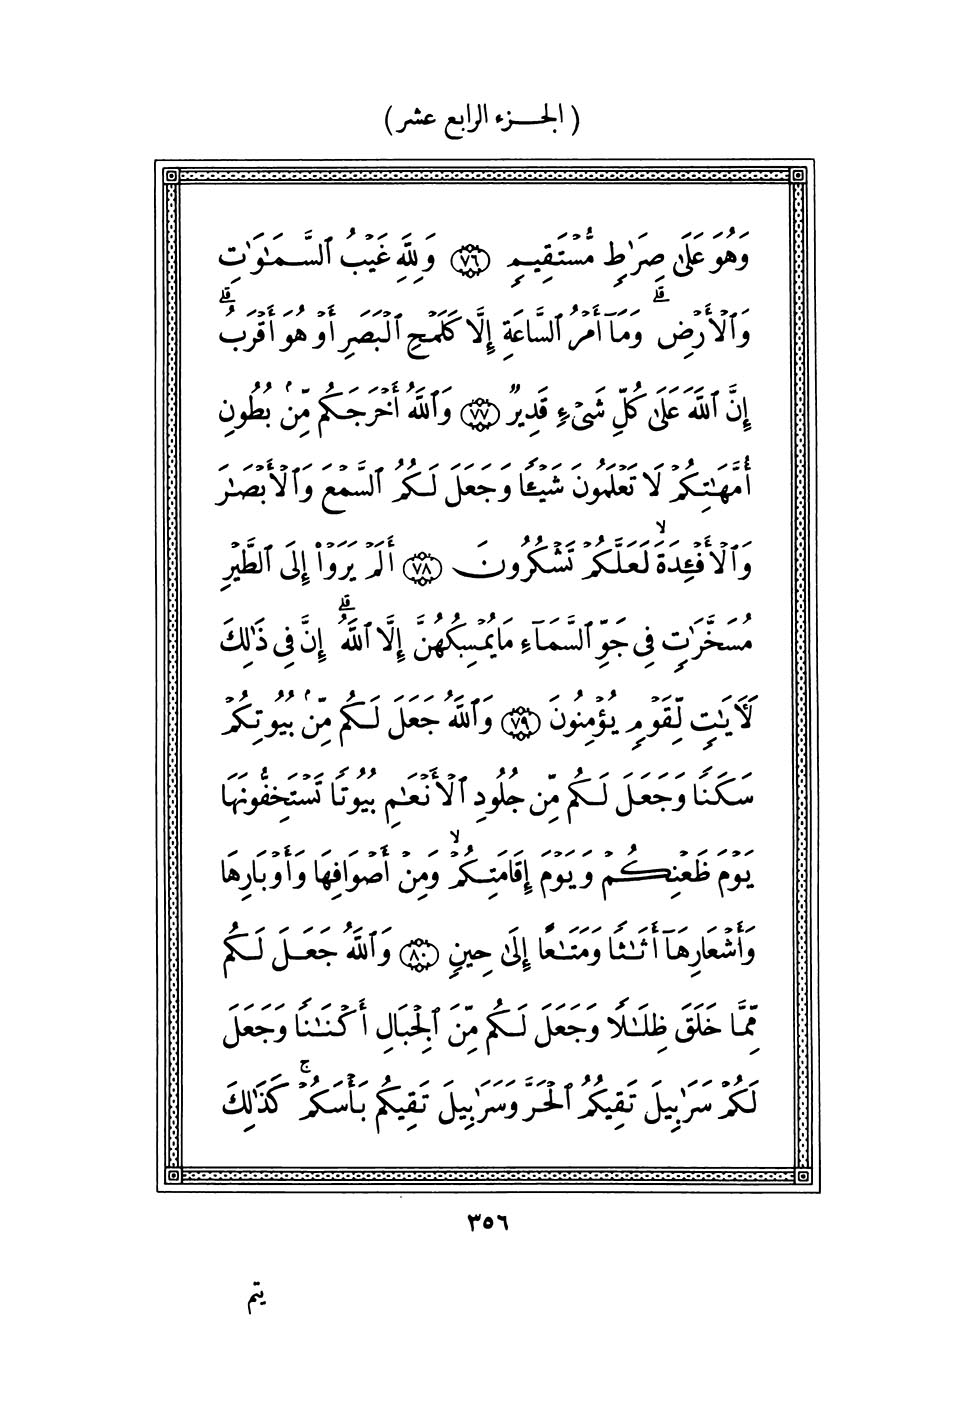 ( الجزء الرابع عشر )
وَهُوَ عَلَىٰ صِرَٰطٍ مُّسْتَقِيمٍ ٧٦ وَلِلَّهِ غَيْبُ ٱلسَّمَٰوَٰتِ
وَٱلْأَرْضِ ۗ وَمَآ أَمْرُ ٱلسَّاعَةِ إِلَّا كَلَمْحِ ٱلْبَصَرِ أَوْ هُوَ أَقْرَبُ ۗ
إِنَّ ٱللَّهَ عَلَىٰ كُلِّ شَىْءٍ قَدِيرٌ ٧٧ وَٱللَّهُ أَخْرَجَكُم مِّنۢ بُطُونِ
أُمَّهَٰتِكُمْ لَا تَعْلَمُونَ شَيْـًٔا وَجَعَلَ لَكُمُ ٱلسَّمْعَ وَٱلْأَبْصَٰرَ
وَٱلْأَفْـِٔدَةَ ۙ لَعَلَّكُمْ تَشْكُرُونَ ٧٨ أَلَمْ يَرَوْا۟ إِلَى ٱلطَّيْرِ
مُسَخَّرَٰتٍ فِى جَوِّ ٱلسَّمَآءِ مَا يُمْسِكُهُنَّ إِلَّا ٱللَّهُ ۗ إِنَّ فِى ذَٰلِكَ
لَـَٔايَٰتٍ لِّقَوْمٍ يُؤْمِنُونَ ٧٩ وَٱللَّهُ جَعَلَ لَكُم مِّنۢ بُيُوتِكُمْ
سَكَنًا وَجَعَلَ لَكُم مِّن جُلُودِ ٱلْأَنْعَٰمِ بُيُوتًا تَسْتَخِفُّونَهَا
يَوْمَ ظَعْنِكُمْ وَيَوْمَ إِقَامَتِكُمْ ۙ وَمِنْ أَصْوَافِهَا وَأَوْبَارِهَا
وَأَشْعَارِهَآ أَثَٰثًا وَمَتَٰعًا إِلَىٰ حِينٍ ٨٠ وَٱللَّهُ جَعَلَ لَكُم
مِّمَّا خَلَقَ ظِلَٰلًا وَجَعَلَ لَكُم مِّنَ ٱلْجِبَالِ أَكْنَٰنًا وَجَعَلَ
لَكُمْ سَرَٰبِيلَ تَقِيكُمُ ٱلْحَرَّ وَسَرَٰبِيلَ تَقِيكُم بَأْسَكُمْ ۚ كَذَٰلِكَ
٣٥٦
يتم